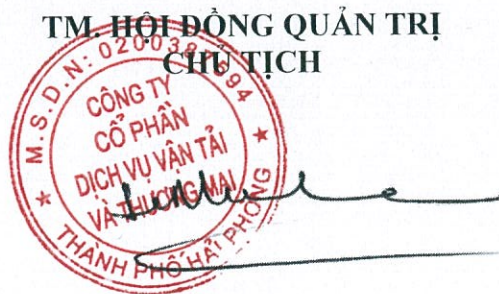 TM. HỘI ĐỒNG QUẢN TRỊ
CHỦ TỊCH
M.S.D.N:
CÔNG TY
CỔ PHẦN
DỊCH VỤ VẬN TẢI
VÀ THƯƠNG MẠI
THÀNH PHỐ HẢI PHÒNG